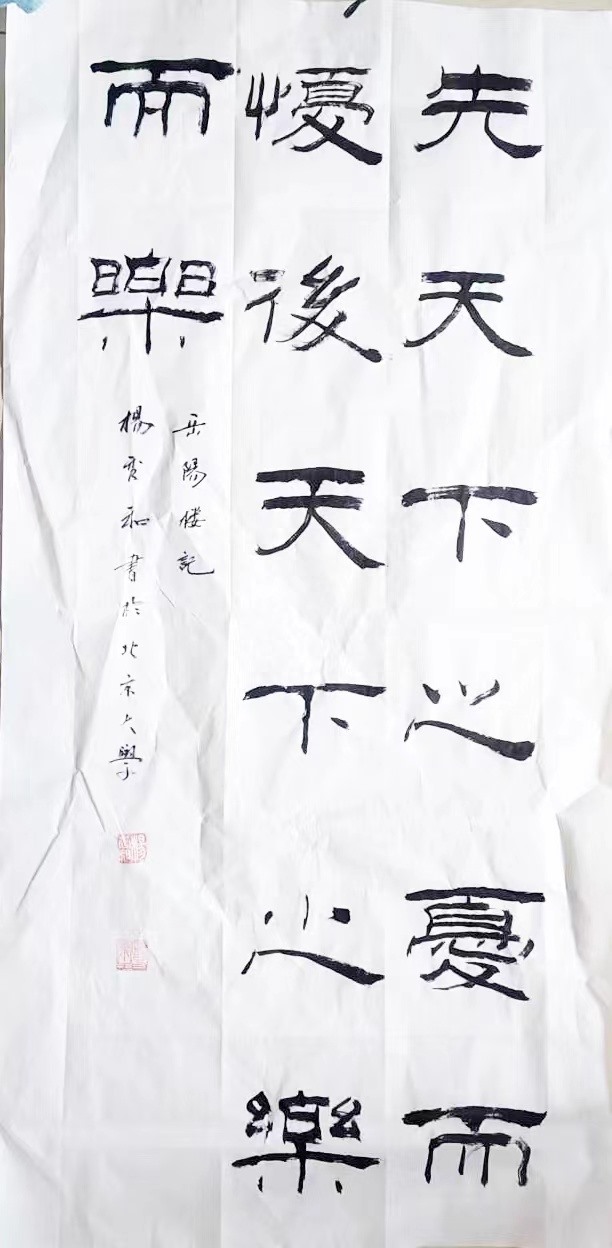 先天下之憂而
懮後天下之樂
而樂
岳陽樓記
楊和書於北京大學